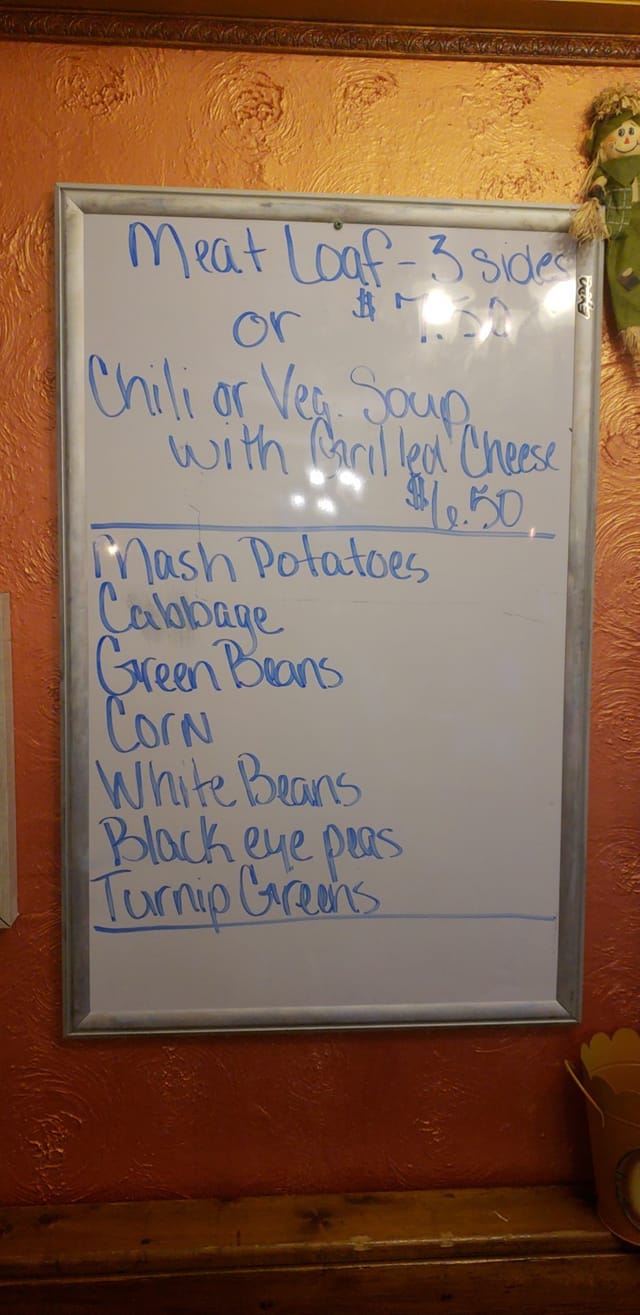 Meat Loaf - 3 sides
or $7.50
Chili or Veg. Soup
with Grilled Cheese
$6.50
Mash Potatoes
Cabbage
Green Beans
Corn
White Beans
Black eye peas
Turnip Greens